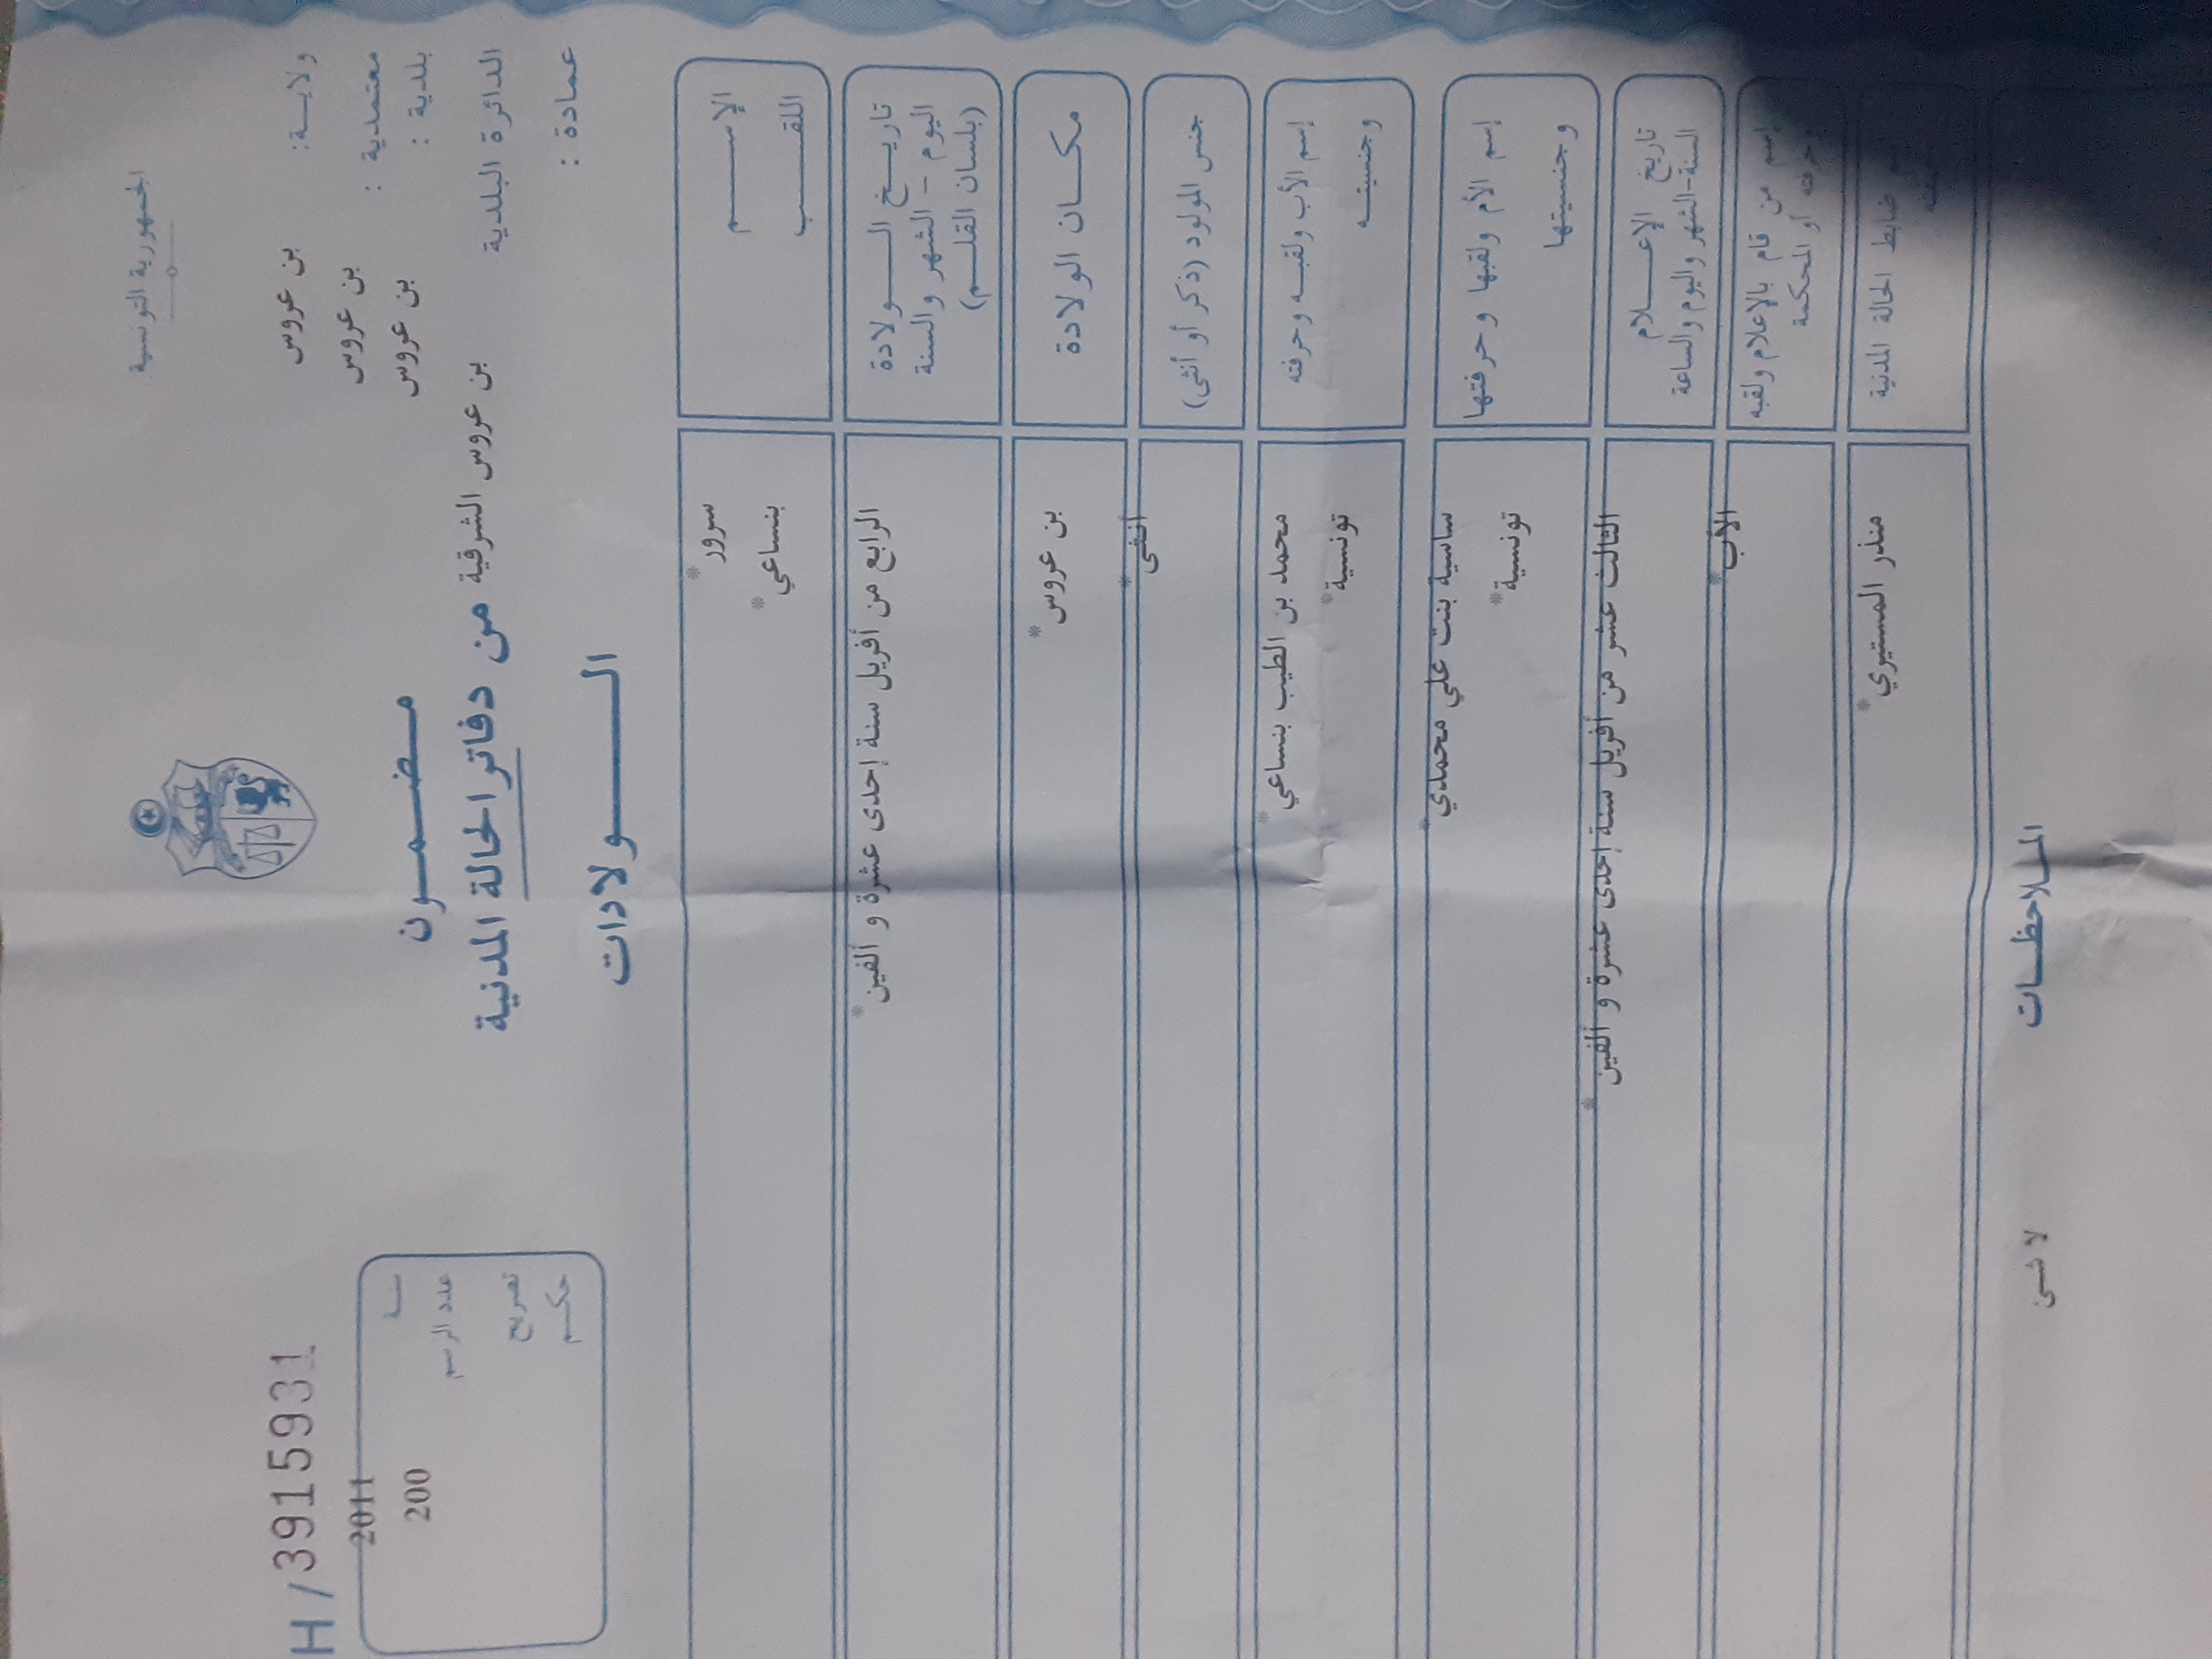 الجمهورية التونسية
H / 3915931
ولايــة: بن عروس
معتمدية : بن عروس
بلدية : بن عروس
الدائرة البلدية بن عروس الشرقية
عمادة :
سنة 2011
عدد الرسم 200
تصريح
حكم
مضمون
من دفاتر الحالة المدنية
الــولادات
الإســم سرور *
اللقــب بنساعي *
تاريــخ الــولادة الرابع من أفريل سنة إحدى عشرة و ألفين *
اليوم - الشهر والسنة
(بلسان القلــم)
مكــان الولادة بن عروس *
جنس المولود (ذكر أو أنثى) أنثى *
إسم الأب ولقبــه وحرفته محمد بن الطيب بنساعي *
وجنسيتــه تونسية *
إسم الأم ولقبها وحرفتها ساسية بنت علي محمدي *
وجنسيتها تونسية *
تاريخ الإعــلام الثالث عشر من أفريل سنة إحدى عشرة و ألفين *
السنة-الشهر واليوم والساعة
إسم من قام بالإعلام ولقبه الأب *
وحرفته أو المحكمة
ضابط الحالة المدنية منذر المستيري *
الملاحظــات
لا شئ